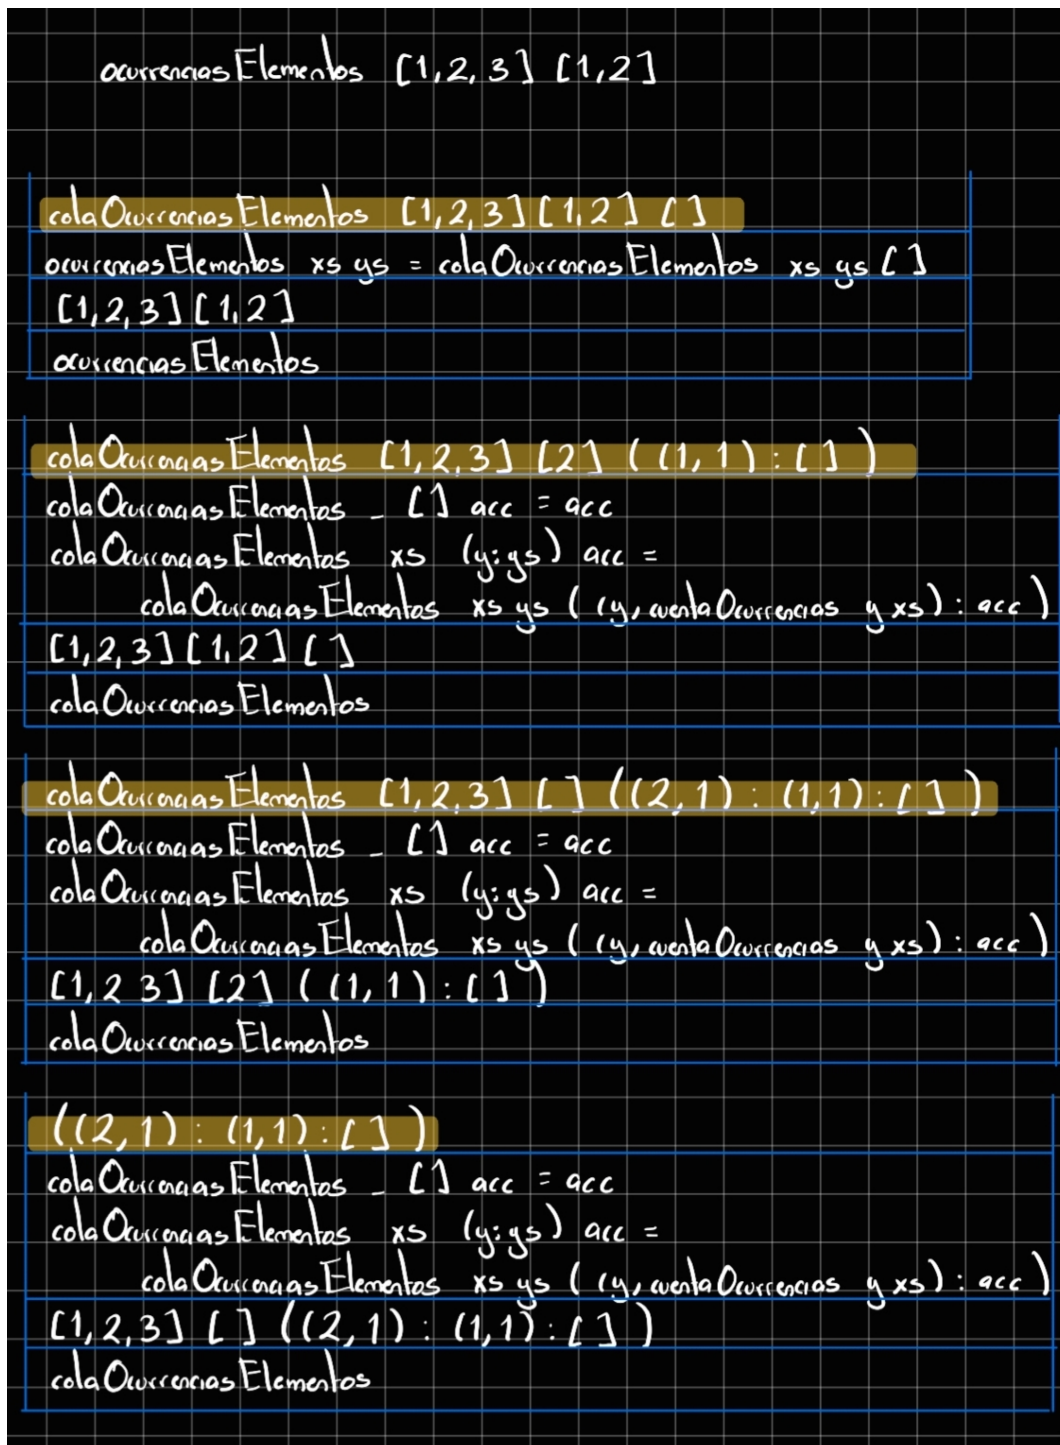 ocurrenciasElementos [1,2,3] [1,2]
colaOcurrenciasElementos [1,2,3] [1,2] []
ocurrenciasElementos xs ys = colaOcurrenciasElementos xs ys []
[1,2,3] [1,2]
ocurrenciasElementos
colaOcurrenciasElementos [1,2,3] [2] ((1,1) : [])
colaOcurrenciasElementos _ [] acc = acc
colaOcurrenciasElementos xs (y:ys) acc =
colaOcurrenciasElementos xs ys ( (y, cuentaOcurrencias y xs) : acc)
[1,2,3] [1,2] []
colaOcurrenciasElementos
colaOcurrenciasElementos [1,2,3] [] ((2,1) : (1,1) : [])
colaOcurrenciasElementos _ [] acc = acc
colaOcurrenciasElementos xs (y:ys) acc =
colaOcurrenciasElementos xs ys ( (y, cuentaOcurrencias y xs) : acc)
[1,2 3] [2] ((1,1) : [])
colaOcurrenciasElementos
((2,1) : (1,1) : [])
colaOcurrenciasElementos _ [] acc = acc
colaOcurrenciasElementos xs (y:ys) acc =
colaOcurrenciasElementos xs ys ( (y, cuentaOcurrencias y xs) : acc)
[1,2,3] [] ((2,1) : (1,1) : [])
colaOcurrenciasElementos